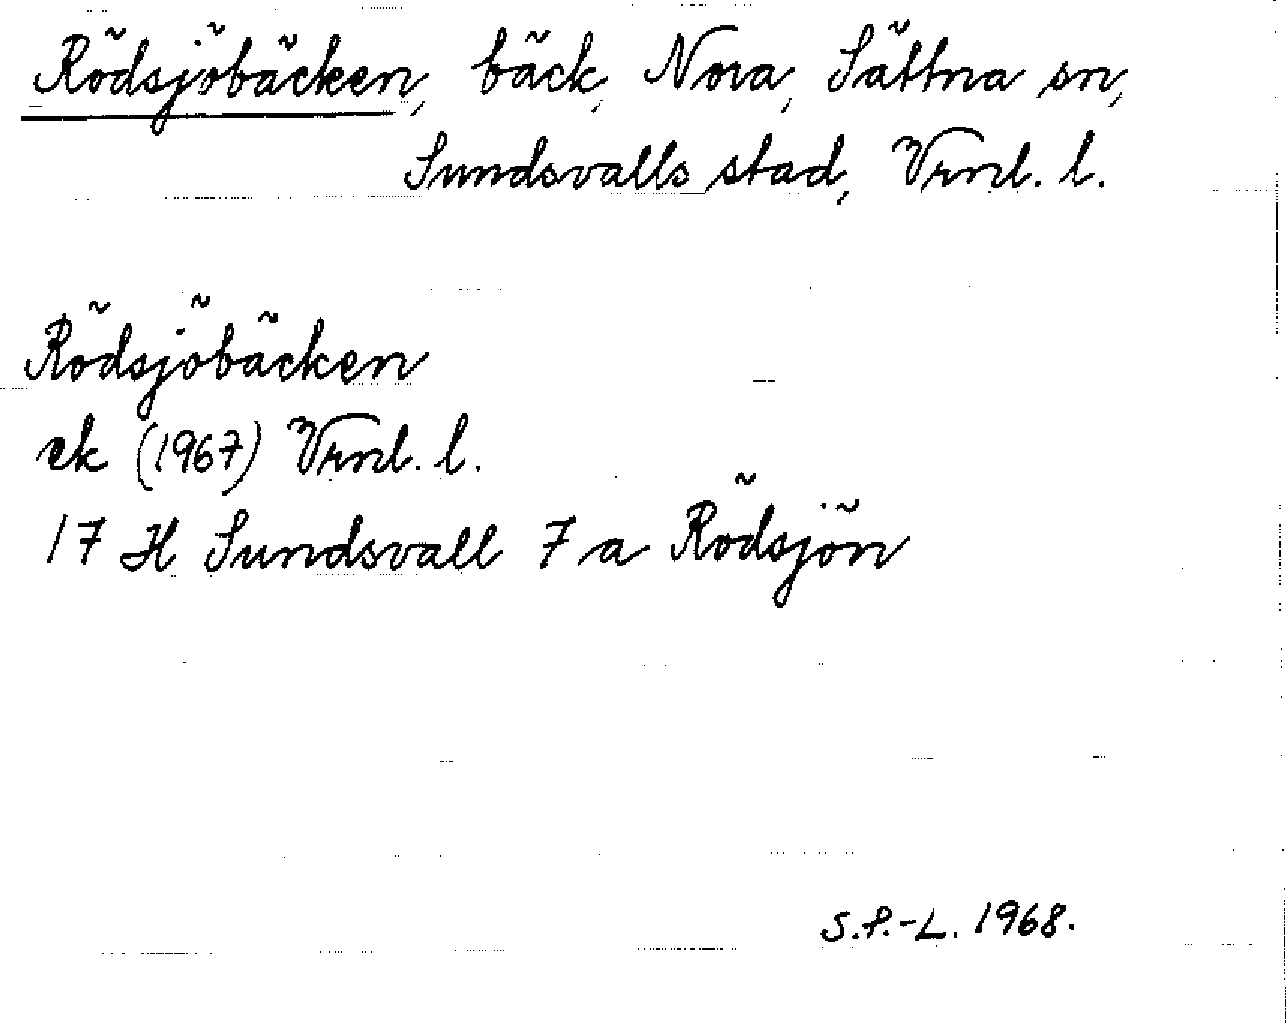 Rödsjöbäcken, bäck, Nora, Sättna sn,
Sundsvalls stad, Vrnl. l.
Rödsjöbäcken
ek (1967) Vrnl. l.
17 H Sundsvall 7 a Rödsjön
S.P.-L. 1968.